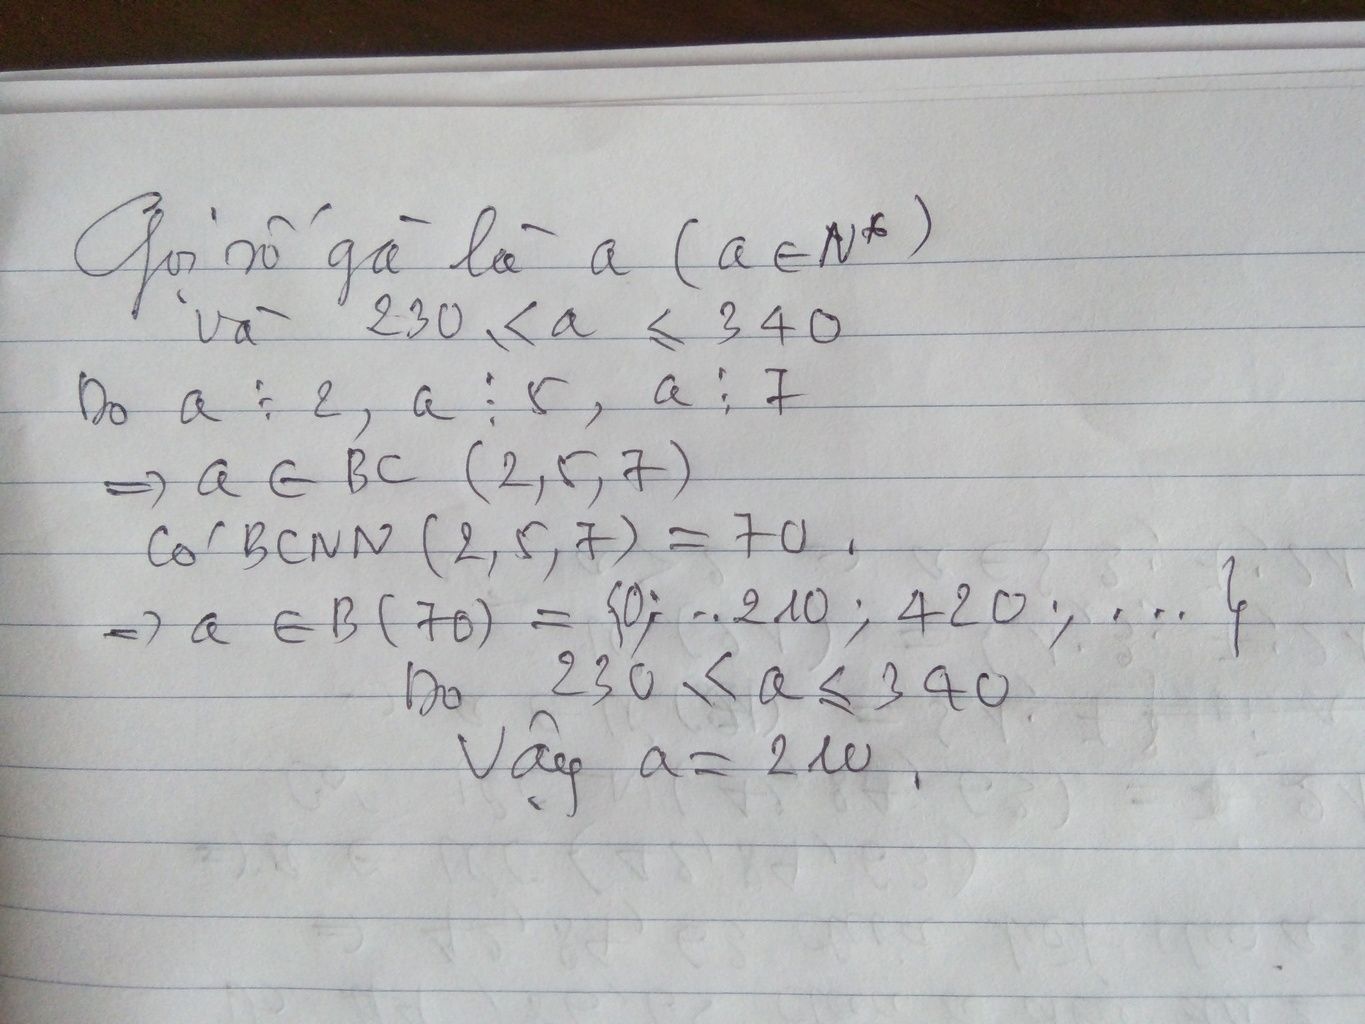 Gọi số gà là a ( a ∈ N* )
và 230 ≤ a ≤ 340
Do a ⋮ 2, a ⋮ 5, a ⋮ 7
=> a ∈ BC (2,5,7)
Có BCNN (2,5,7) = 70.
=> a ∈ B(70) = {0; ..210; 420; .... }
Do 230 ≤ a ≤ 340
Vậy a = 210.